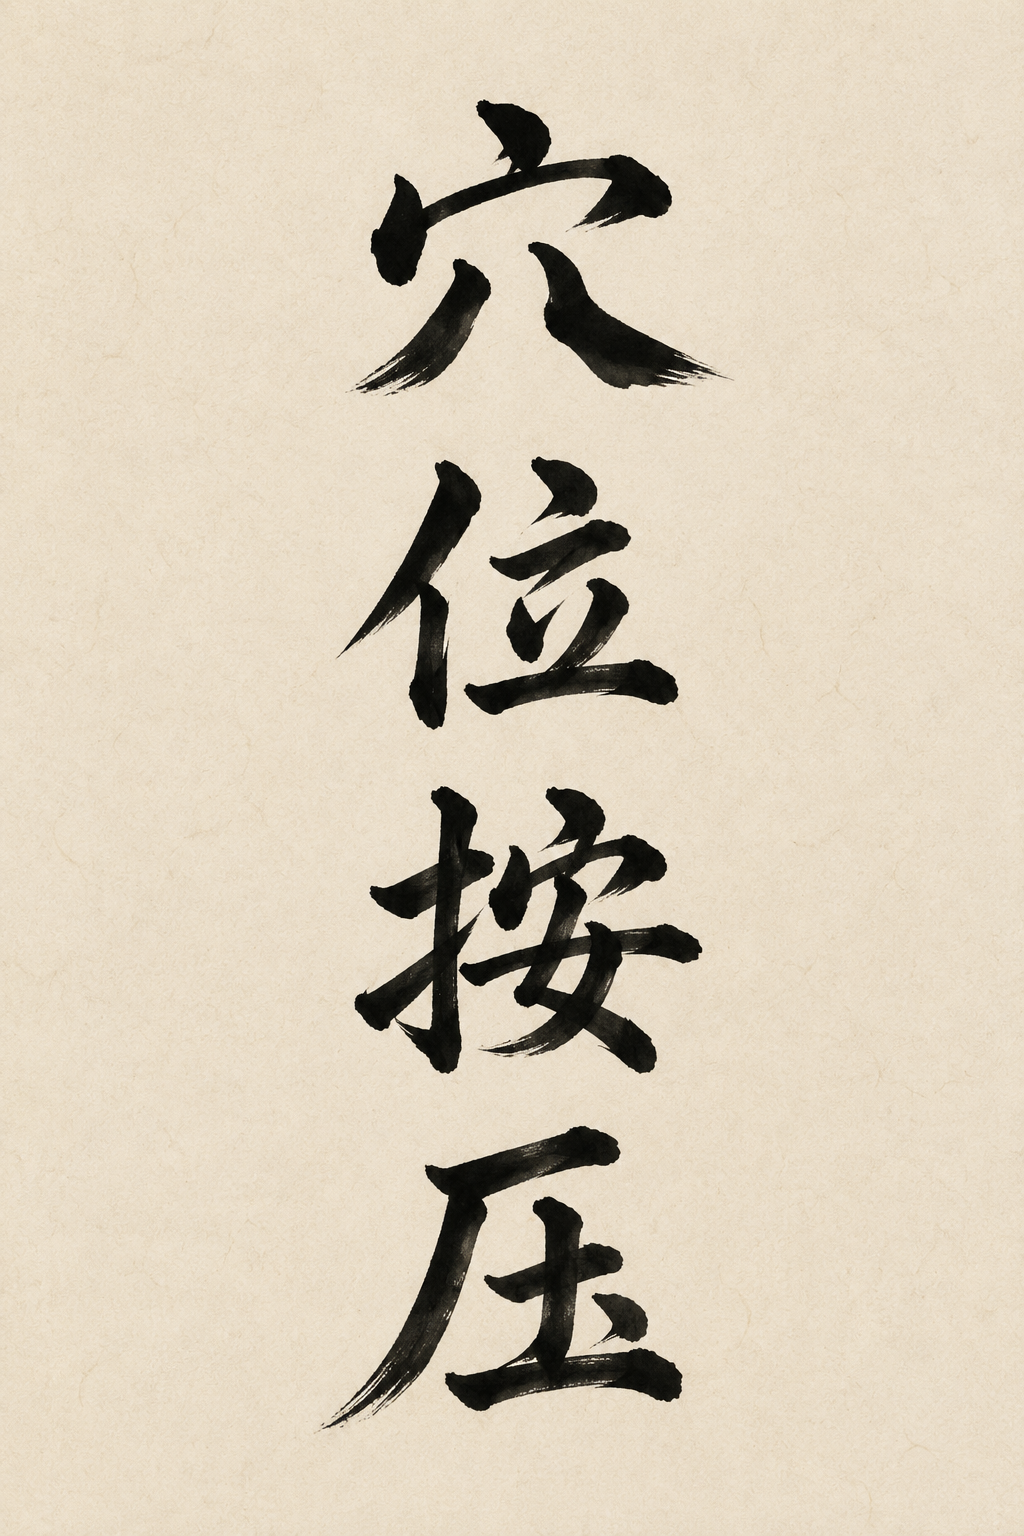 穴位按压